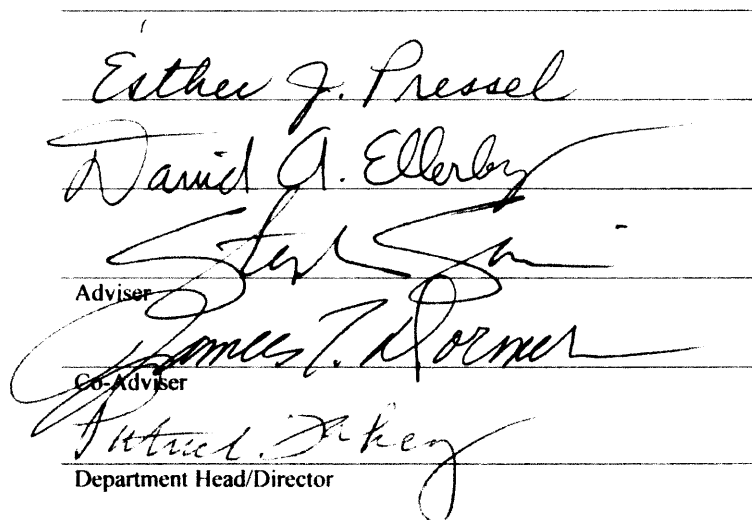 Esther J. Pressel
David A. Ellerby
Adviser
James T. Dormer
Co-Adviser
Department Head/Director